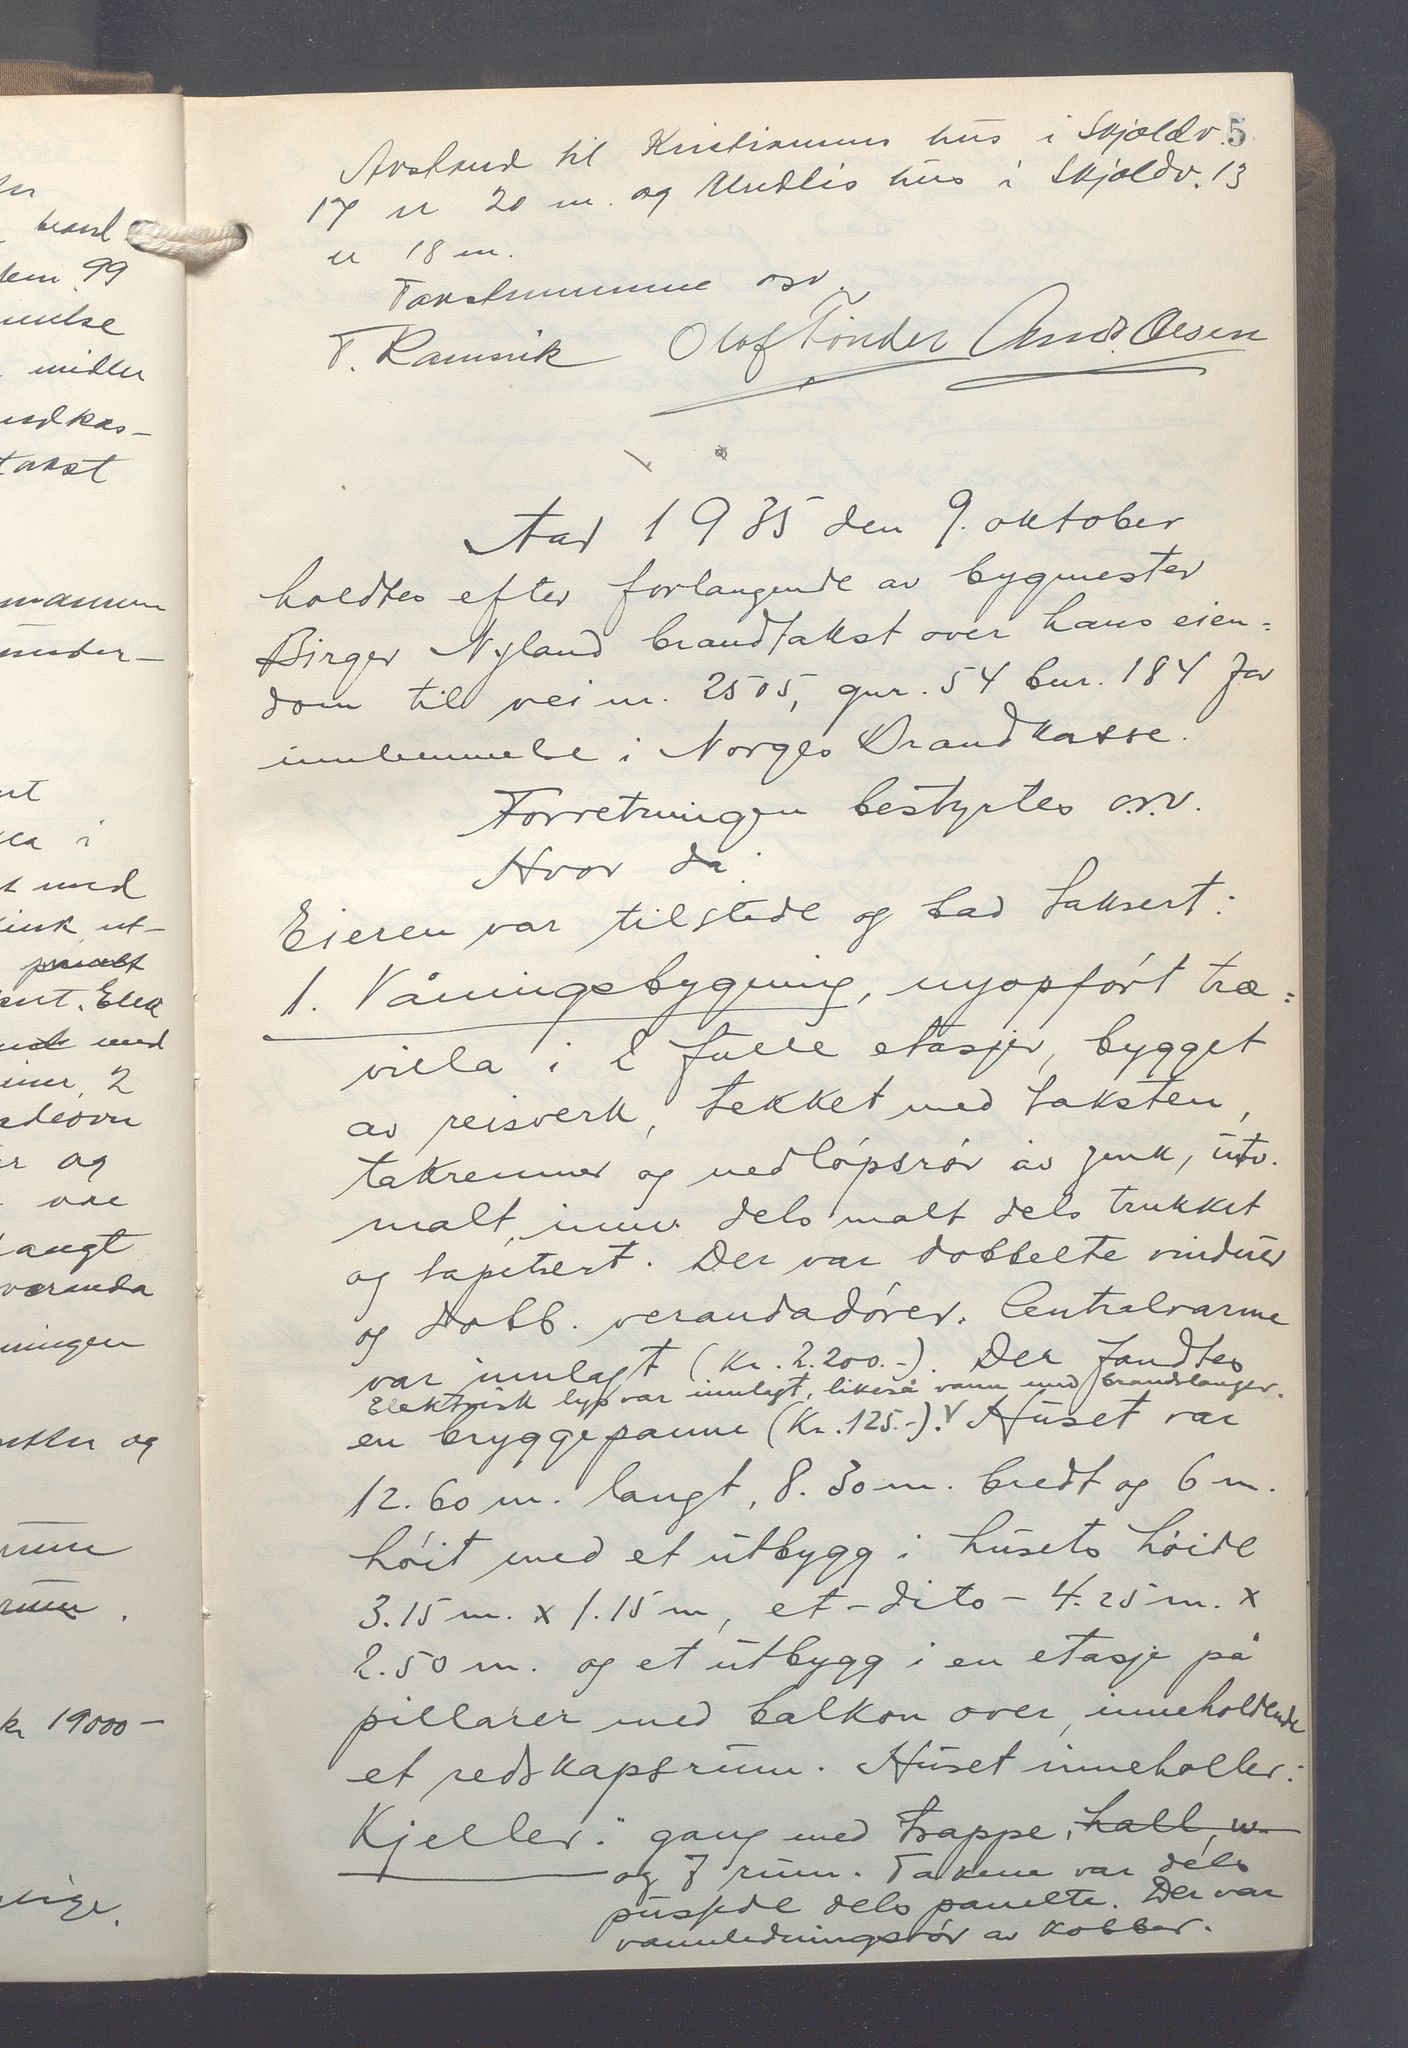 5
Avstand til Kristiansens hus i Skjoldv.
17 er 20 m. og Undlis hus i Skjoldv. 13
er 18 m.
Takstsummene osv.
T. Ramsvik Olaf Tönder And. Olesen
Aar 1935 den 9. oktober
holdtes efter forlangende av bygmester
Birger Nyland brandtakst over hans eien=
dom til vei nr. 2505, gnr. 54 bnr. 184 for
innlemmelse i Norges Brandkasse.
Forretningen bestyrtes osv.
Hvor da:
Eieren var tilstede og bad taksert:
1. Våningsbygning, nyopført træ=
villa i 2 fulle etasjer, bygget
av reisverk, tekket med taksten,
takrenner og nedløpsrør av zink, utv.
malt, innv. dels malt dels trukket
og tapetsert. Der var dobbelte vinduer
og dobb. verandadører. Centralvarme
var innlagt (Kr. 2.200.-). Der fandtes
Elektrisk lys var innlagt, likeså vann med brandslanger.
en bryggepanne (Kr. 125.-). V Huset var
12.60 m. langt, 8.30 m. bredt og 6 m.
høit med et utbygg i husets høide
3.15 m. x 1.15 m, et - dito - 4.25 m. x
2.50 m. og et utbygg i en etasje på
pillarer med balkon over, inneholdende
et redskapsrum. Huset inneholder:
Kjeller: gang med trappe, hall, w-
og 7 rum. Takene var dels
pussede dels panelte. Der var
vannledningsrør av kobber.
brand
99
midler
takst
i
med
ut-
Elek
med
2
og
langt
veranda
og
rum
kr 19000-